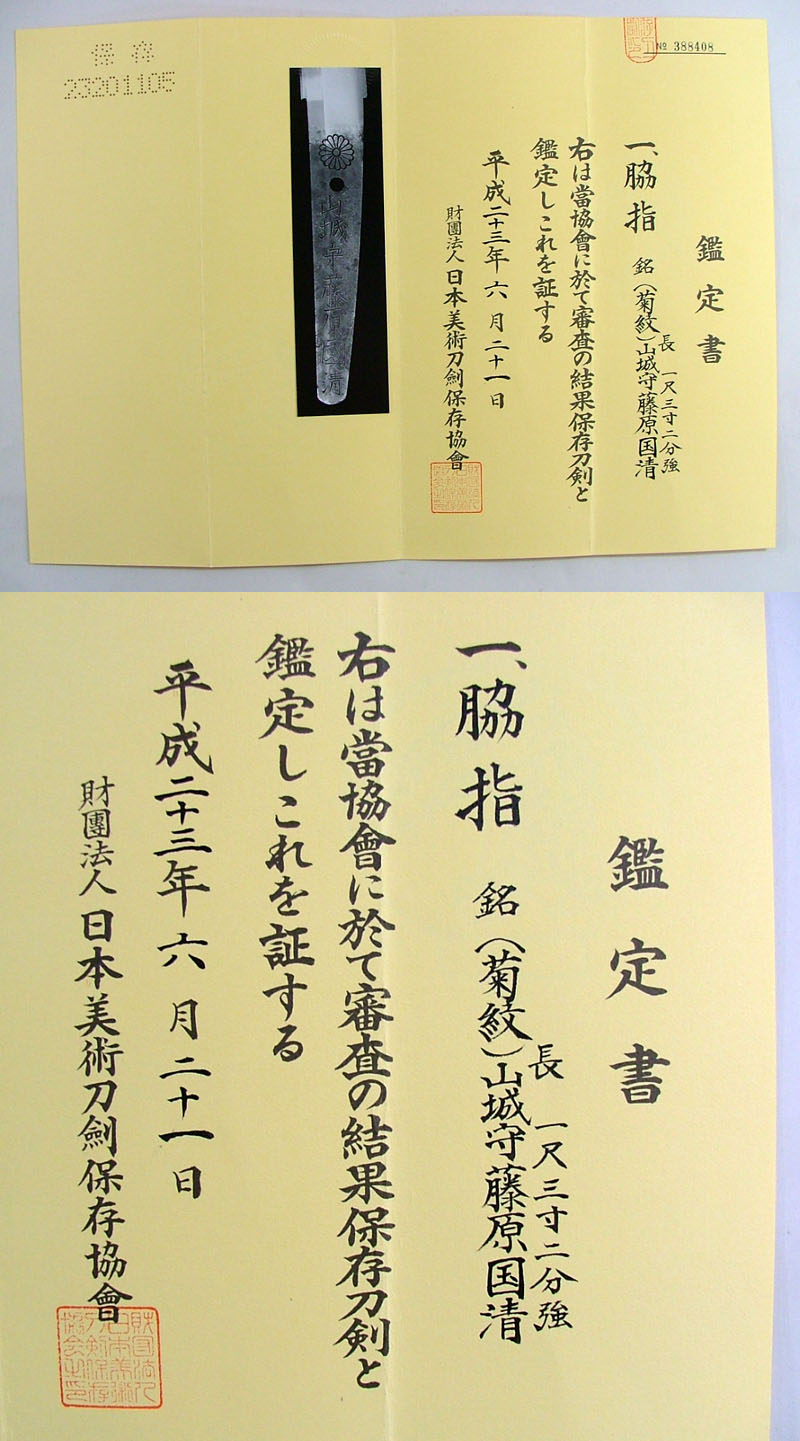 保存
23201105
№ 388408
鑑定書
一、脇指 銘(菊紋)山城守藤原国清
長 一尺三寸二分強
右は當協會に於て審査の結果保存刀剣と
鑑定しこれを証する
平成二十三年六月二十一日
財團法人日本美術刀劍保存協會
山城守藤原国清
鑑定書
一、脇指 銘(菊紋)山城守藤原国清
長 一尺三寸二分強
右は當協會に於て審査の結果保存刀剣と
鑑定しこれを証する
平成二十三年六月二十一日
財團法人日本美術刀劍保存協會